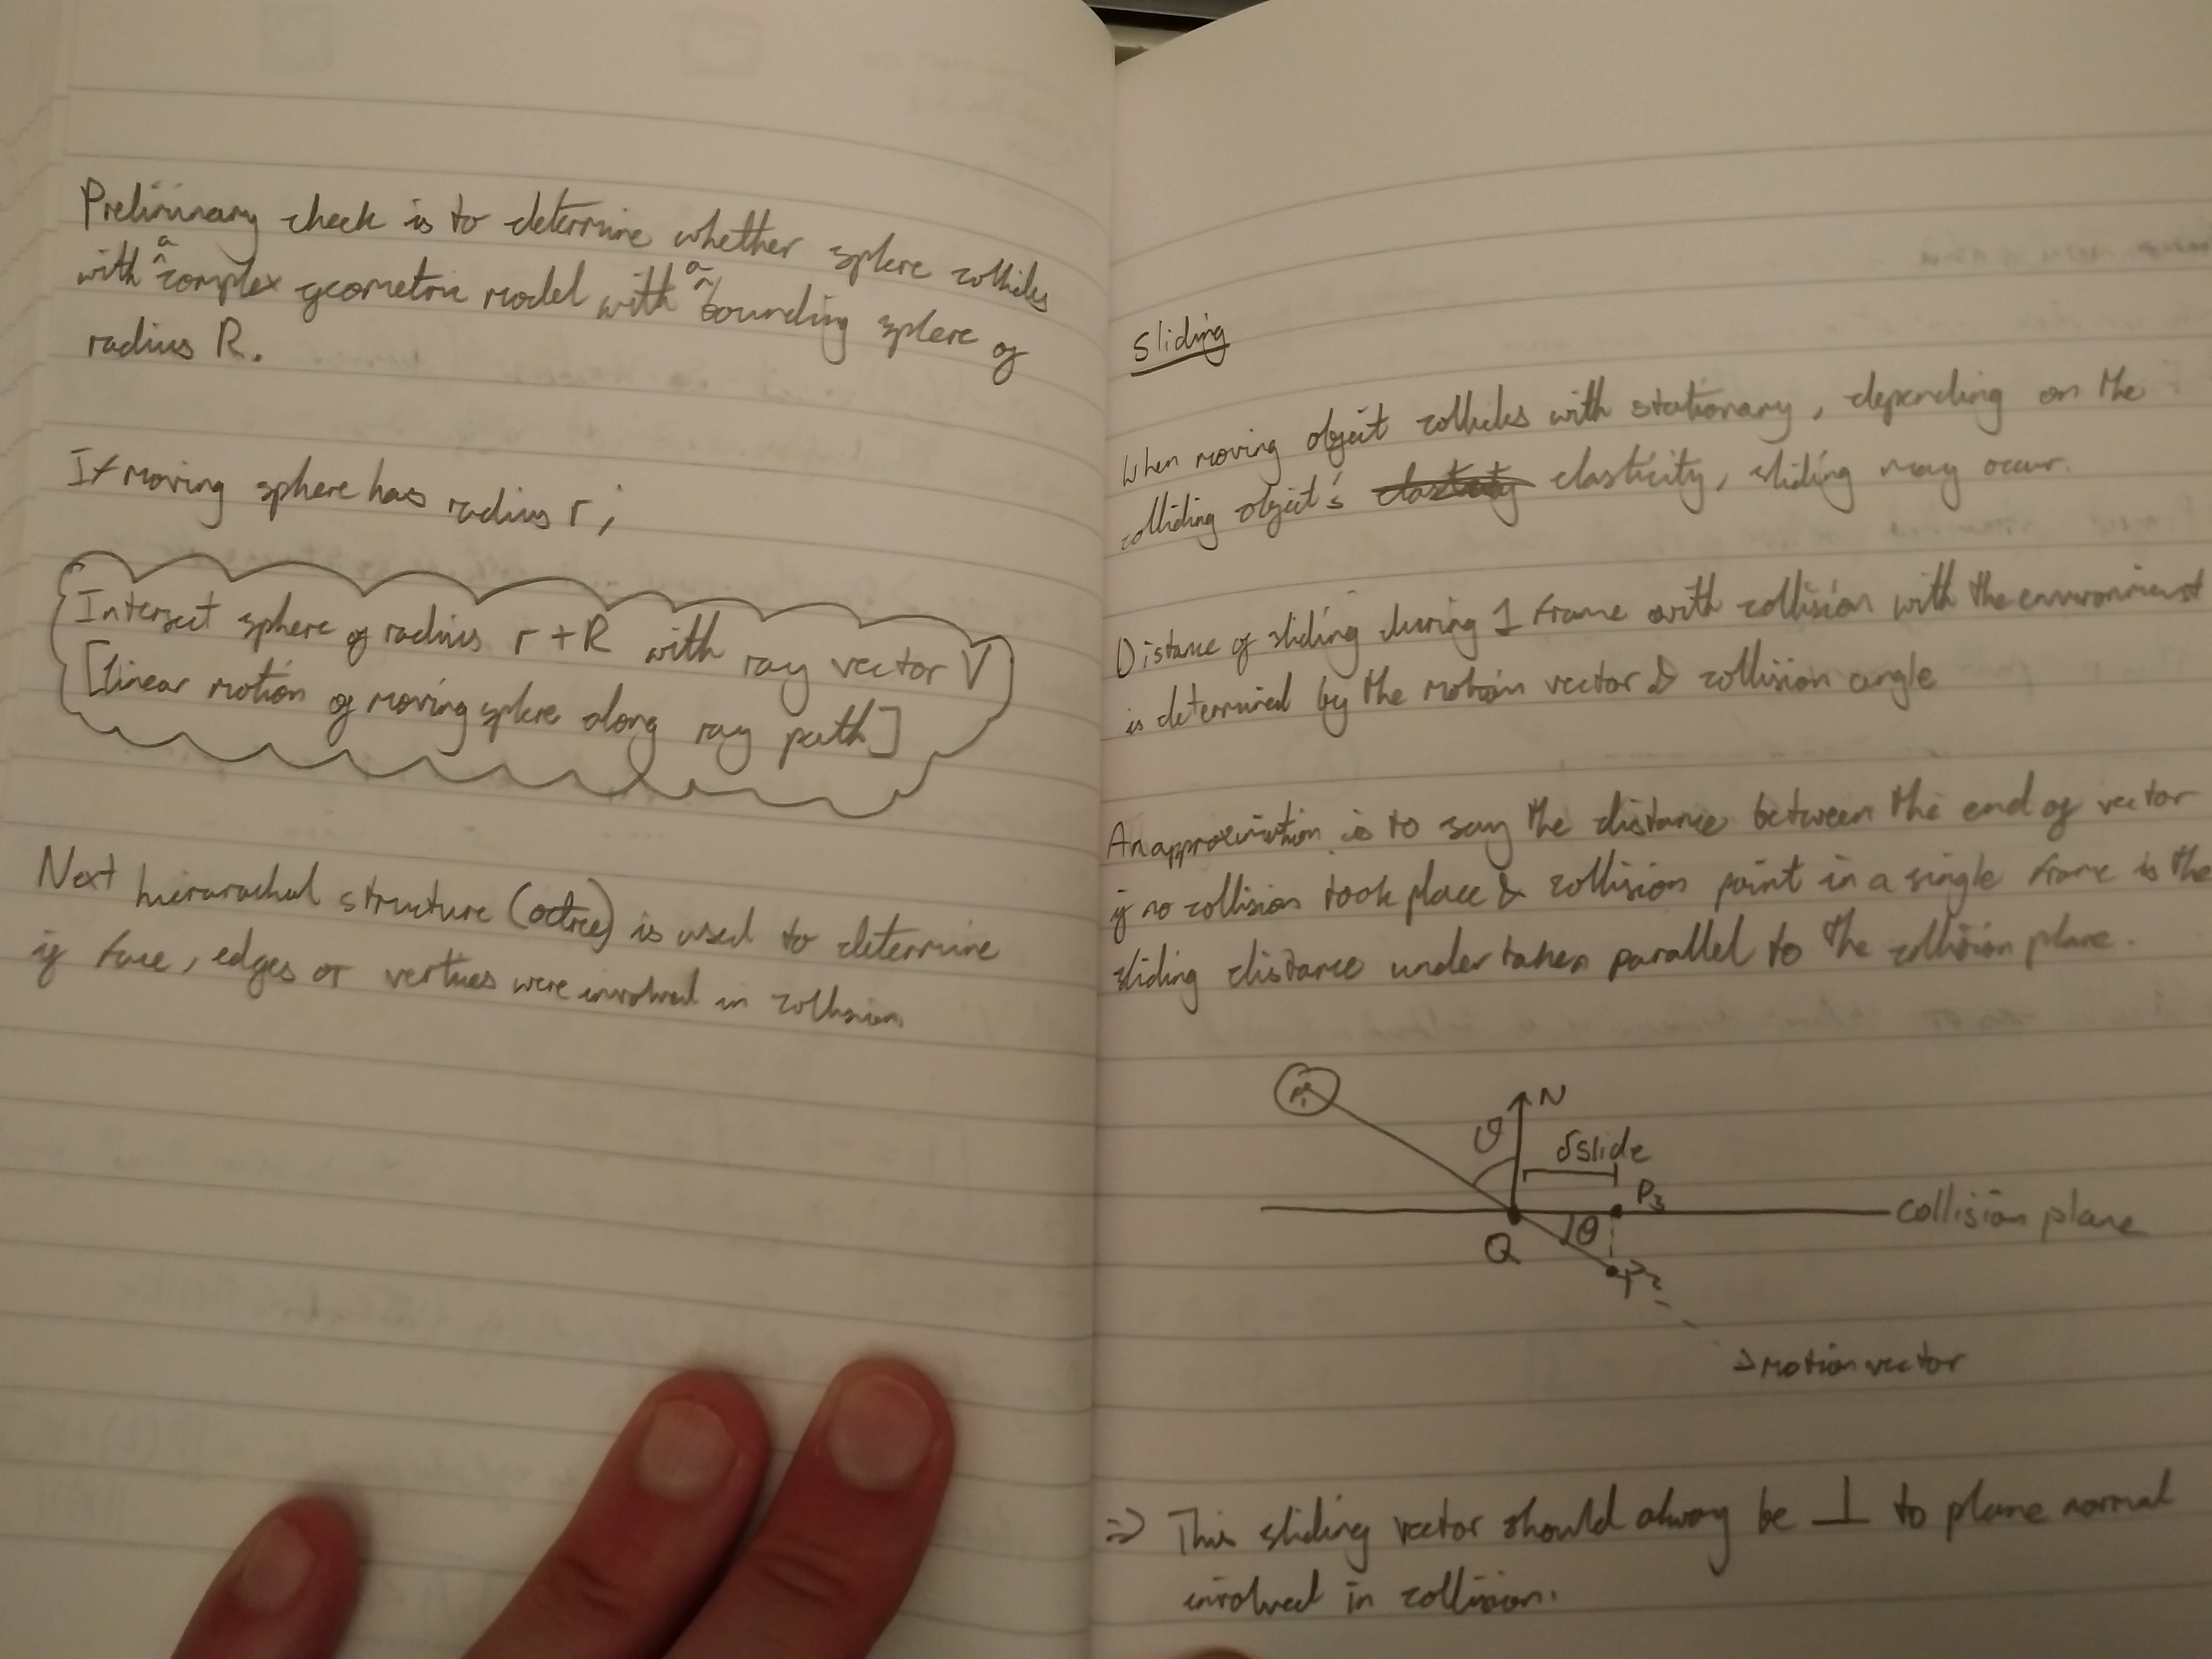 Preliminary check is to determine whether sphere collides
with a complex geometric model with a bounding sphere of
radius R.
If moving sphere has radius r;
Intersect sphere of radius r + R with ray vector V
[linear motion of moving sphere along ray path]
Next hierarachal structure (octree) is used to determine
if face, edges or vertices were involved in collision
Sliding
When moving object collides with stationary, depending on the
colliding object's elasticity, sliding may occur.
Distance of sliding during 1 frame with collision with the environment
is determined by the motion vector & collision angle
An approximation is to say the distance between the end of vector
if no collision took place & collision point in a single frame is the
sliding distance undertaken parallel to the collision plane.
P₁
N
θ
δslide
P₃
collision plane
Q
θ
P₂
motion vector
⇒ This sliding vector should alway be ⊥ to plane normal
involved in collision.